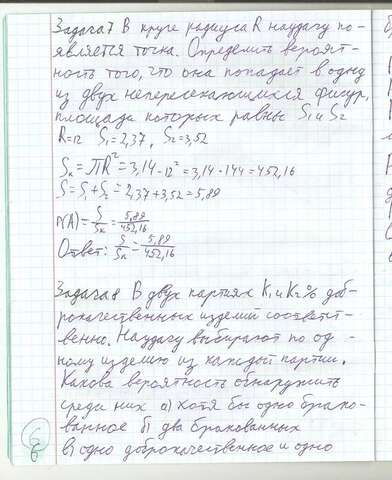 Задача 7 В круге радиуса R наудачу по-
является точка. Определить вероят-
ность того, что она попадает в одну
из двух непересекающихся фигур,
площади которых равны S₁ и S₂
R=12 S₁=2,37, S₂=3,52
Sк=ПR²=3,14·12²=3,14·144=452,16
S=S₁+S₂=2,37+3,52=5,89
P(A)=S/Sк=5,89/452,16
Ответ: S/Sк=5,89/452,16
Задача 8 В двух партиях K₁ и K₂% доб-
рокачественных изделий соответст-
венно. Наудачу выбирают по од-
ному изделию из каждой партии.
Какова вероятность обнаружить
среди них а) хотя бы одно брако-
ванное б) два бракованных
в) одно доброкачественное и одно